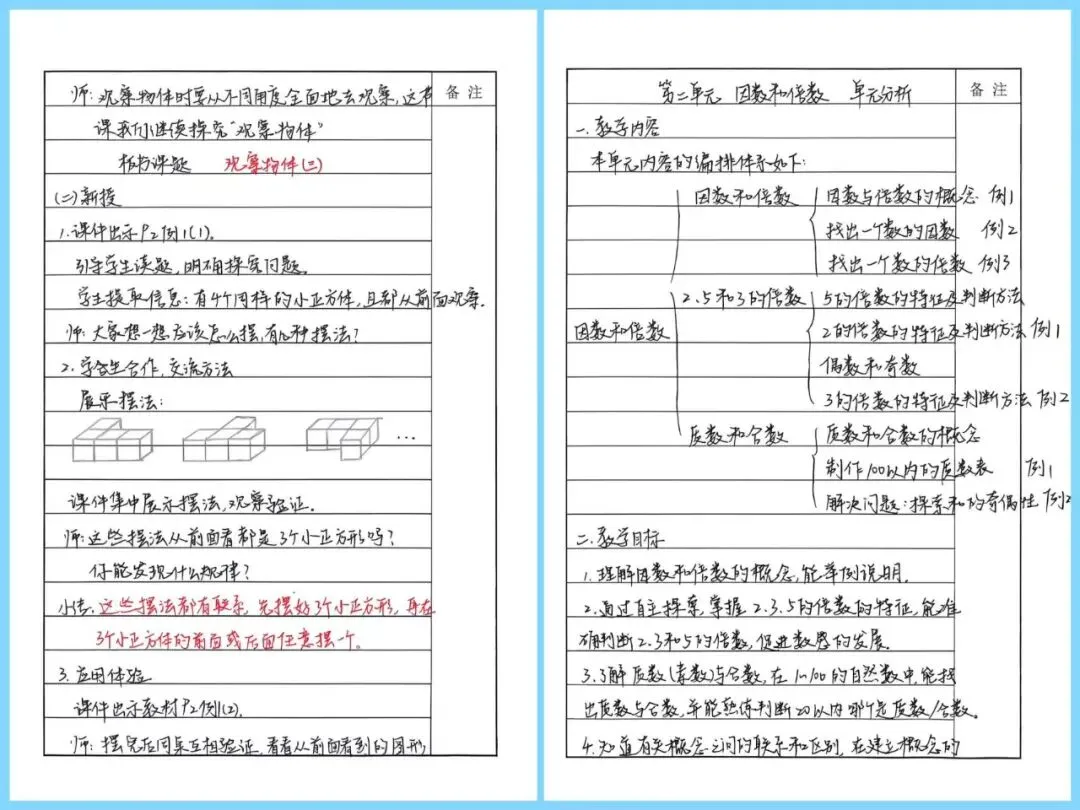 师:观察物体时要从不同角度全面地去观察,这节
备注
课我们继续探究“观察物体”
板书课题 观察物体(三)
(二)新授
1.课件出示P2例1(1).
引导学生读题,明确探究问题。
学生提取信息:有4个同样的小正方体,且都从前面观察.
师:大家想一想应该怎么摆,有几种摆法?
2.学生合作,交流方法
展示摆法:
...
课件集中展示摆法,观察验证.
师:这些摆法从前面看都是3个小正方形吗?
你能发现什么规律?
小结:这些摆法都有联系,先摆好3个小正方形,再在
3个小正方体的前面或后面任意摆一个。
3.应用体验
课件出示教材P2例1(2).
师:摆完后同桌互相验证,看看从前面看到的图形
第二单元 因数和倍数 单元分析
备注
一.教学内容
本单元内容的编排体系如下:
因数和倍数 因数与倍数的概念 例1
找出一个数的因数 例2
找出一个数的倍数 例3
2.5和3的倍数 5的倍数的特征及判断方法
因数和倍数 2的倍数的特征及判断方法 例1
偶数和奇数
3的倍数的特征及判断方法 例2
质数和合数 质数和合数的概念
制作100以内的质数表 例1
解决问题:探索和的奇偶性 例2
二.教学目标
1.理解因数和倍数的概念,能举例说明.
2.通过自主探索,掌握2.3.5的倍数的特征,能准
确判断2.3和5的倍数,促进数感的发展.
3.了解质数(素数)与合数,在1~100的自然数中,能找
出质数与合数,并能熟练判断20以内哪个是质数/合数。
4.知道有关概念之间的联系和区别,在建立概念的